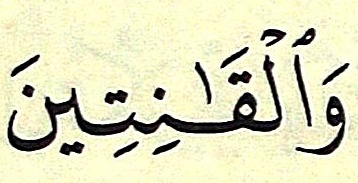 وَٱلْقَـٰنِتِينَ